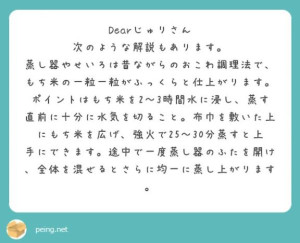 Dearじゅりさん
次のような解説もあります。
蒸し器やせいろは昔ながらのおこわ調理法で、
もち米の一粒一粒がふっくらと仕上がります。
ポイントはもち米を2〜3時間水に浸し、蒸す
直前に十分に水気を切ること。布巾を敷いた上
にもち米を広げ、強火で25〜30分蒸すと上
手にできます。途中で一度蒸し器のふたを開け
、全体を混ぜるとさらに均一に蒸し上がります
。
peing.net